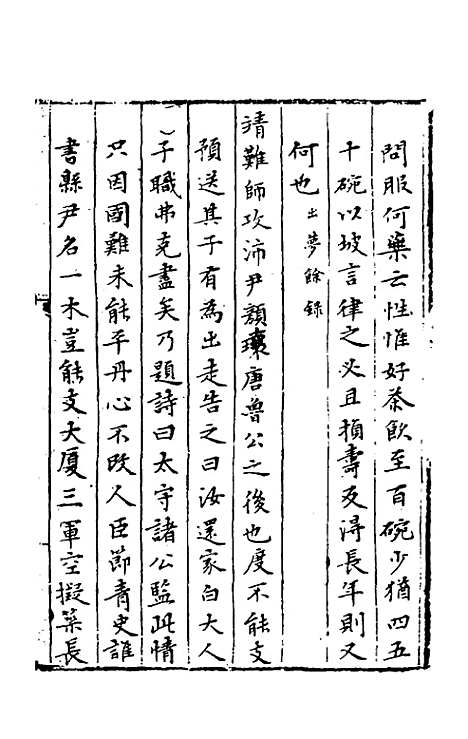 問服何藥云性惟好茶飲至百碗少猶四五
十碗以坡言律之必且損壽反得長年則又
何也出夢餘錄
靖難師攻沛尹顏瓌唐魯公之後也度不能支
預送其子有為出走告之曰汝還家白大人
子職弗克盡矣乃題詩曰太守諸公監此情
只因國難未能平丹心不改人臣節青史誰
書縣尹名一木豈能支大廈三軍空擬築長